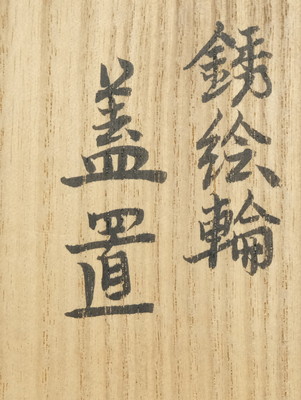 銹絵輪
蓋置